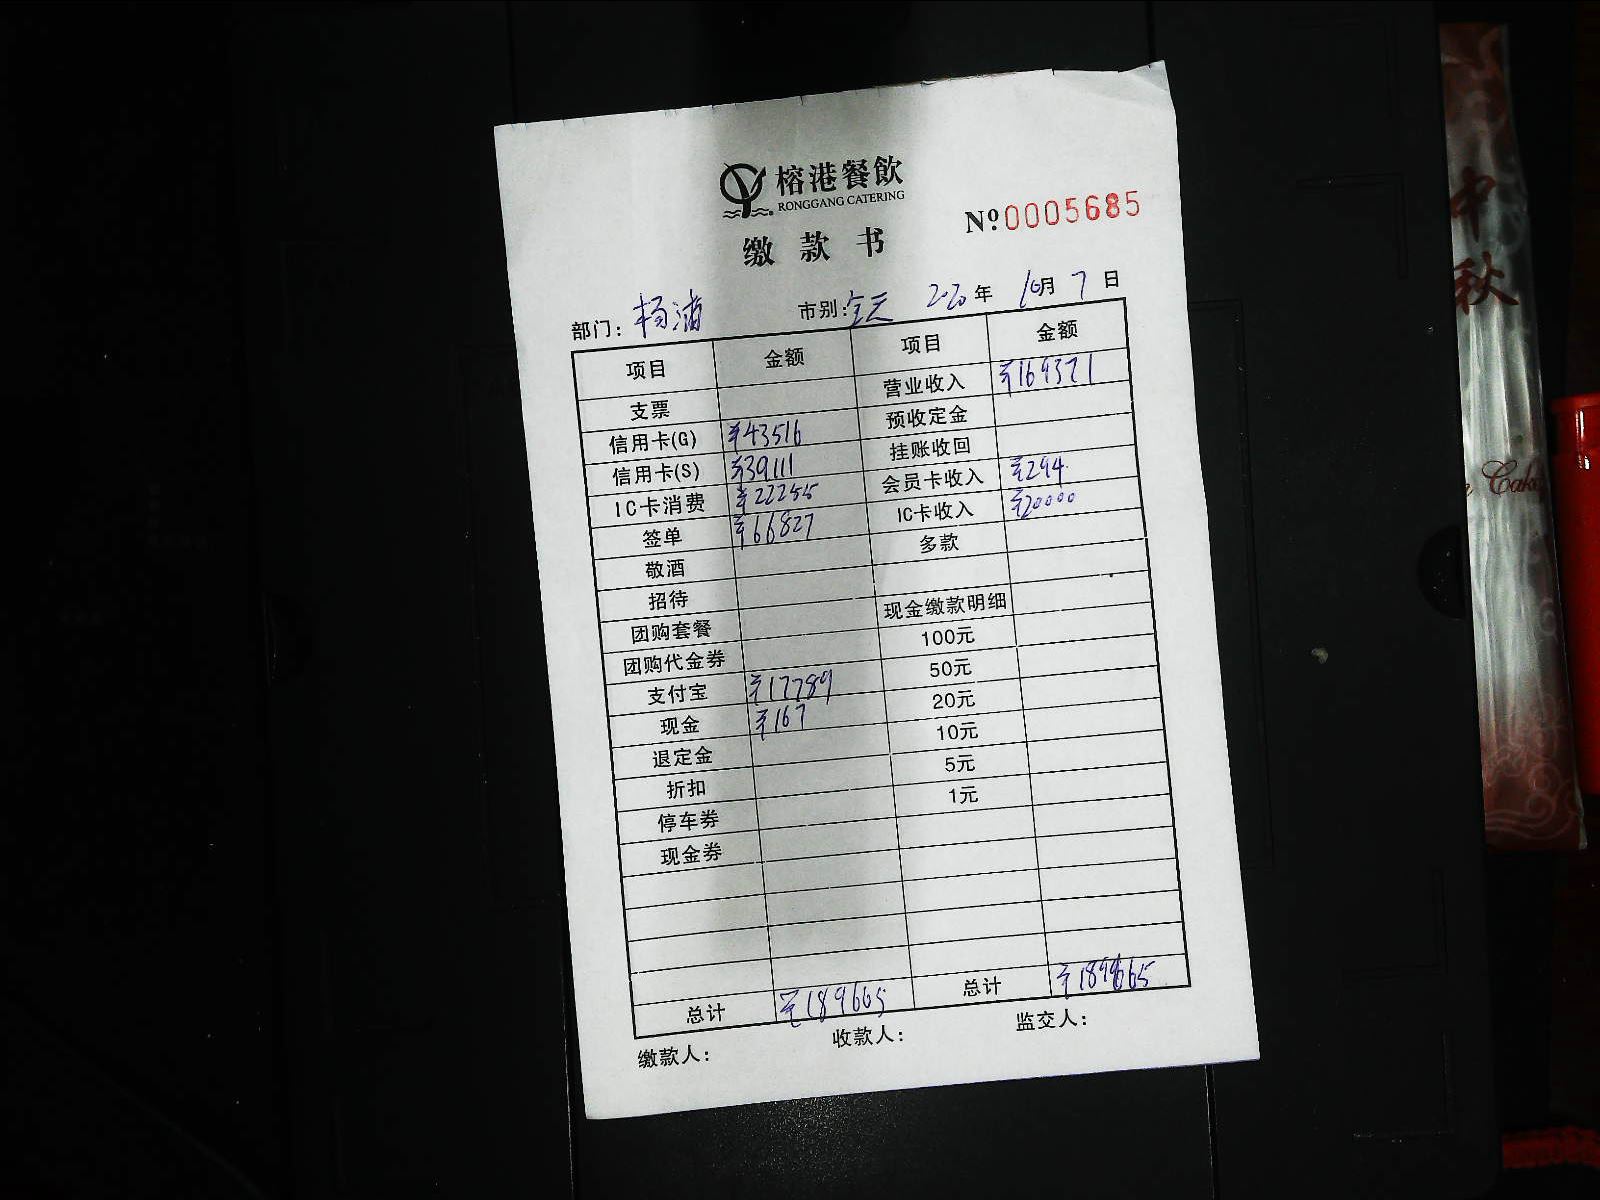 榕港餐飲
RONGGANG CATERING
缴款书 Nº:0005685
部门：杨浦 市别：全天 2020年10月7日
项目 金额 项目 金额
支票 营业收入 ¥169371
信用卡(G) ¥43516 预收定金
信用卡(S) ¥39111 挂账收回
IC卡消费 ¥22255 会员卡收入 ¥294
签单 ¥66827 IC卡收入 ¥20000
敬酒 多款
招待
团购套餐 现金缴款明细
团购代金券 100元
支付宝 ¥17789 50元
现金 ¥167 20元
退定金 10元
折扣 5元
停车券 1元
现金券
总计 ¥189665 总计 ¥189665
缴款人： 收款人： 监交人：
中秋
Cake